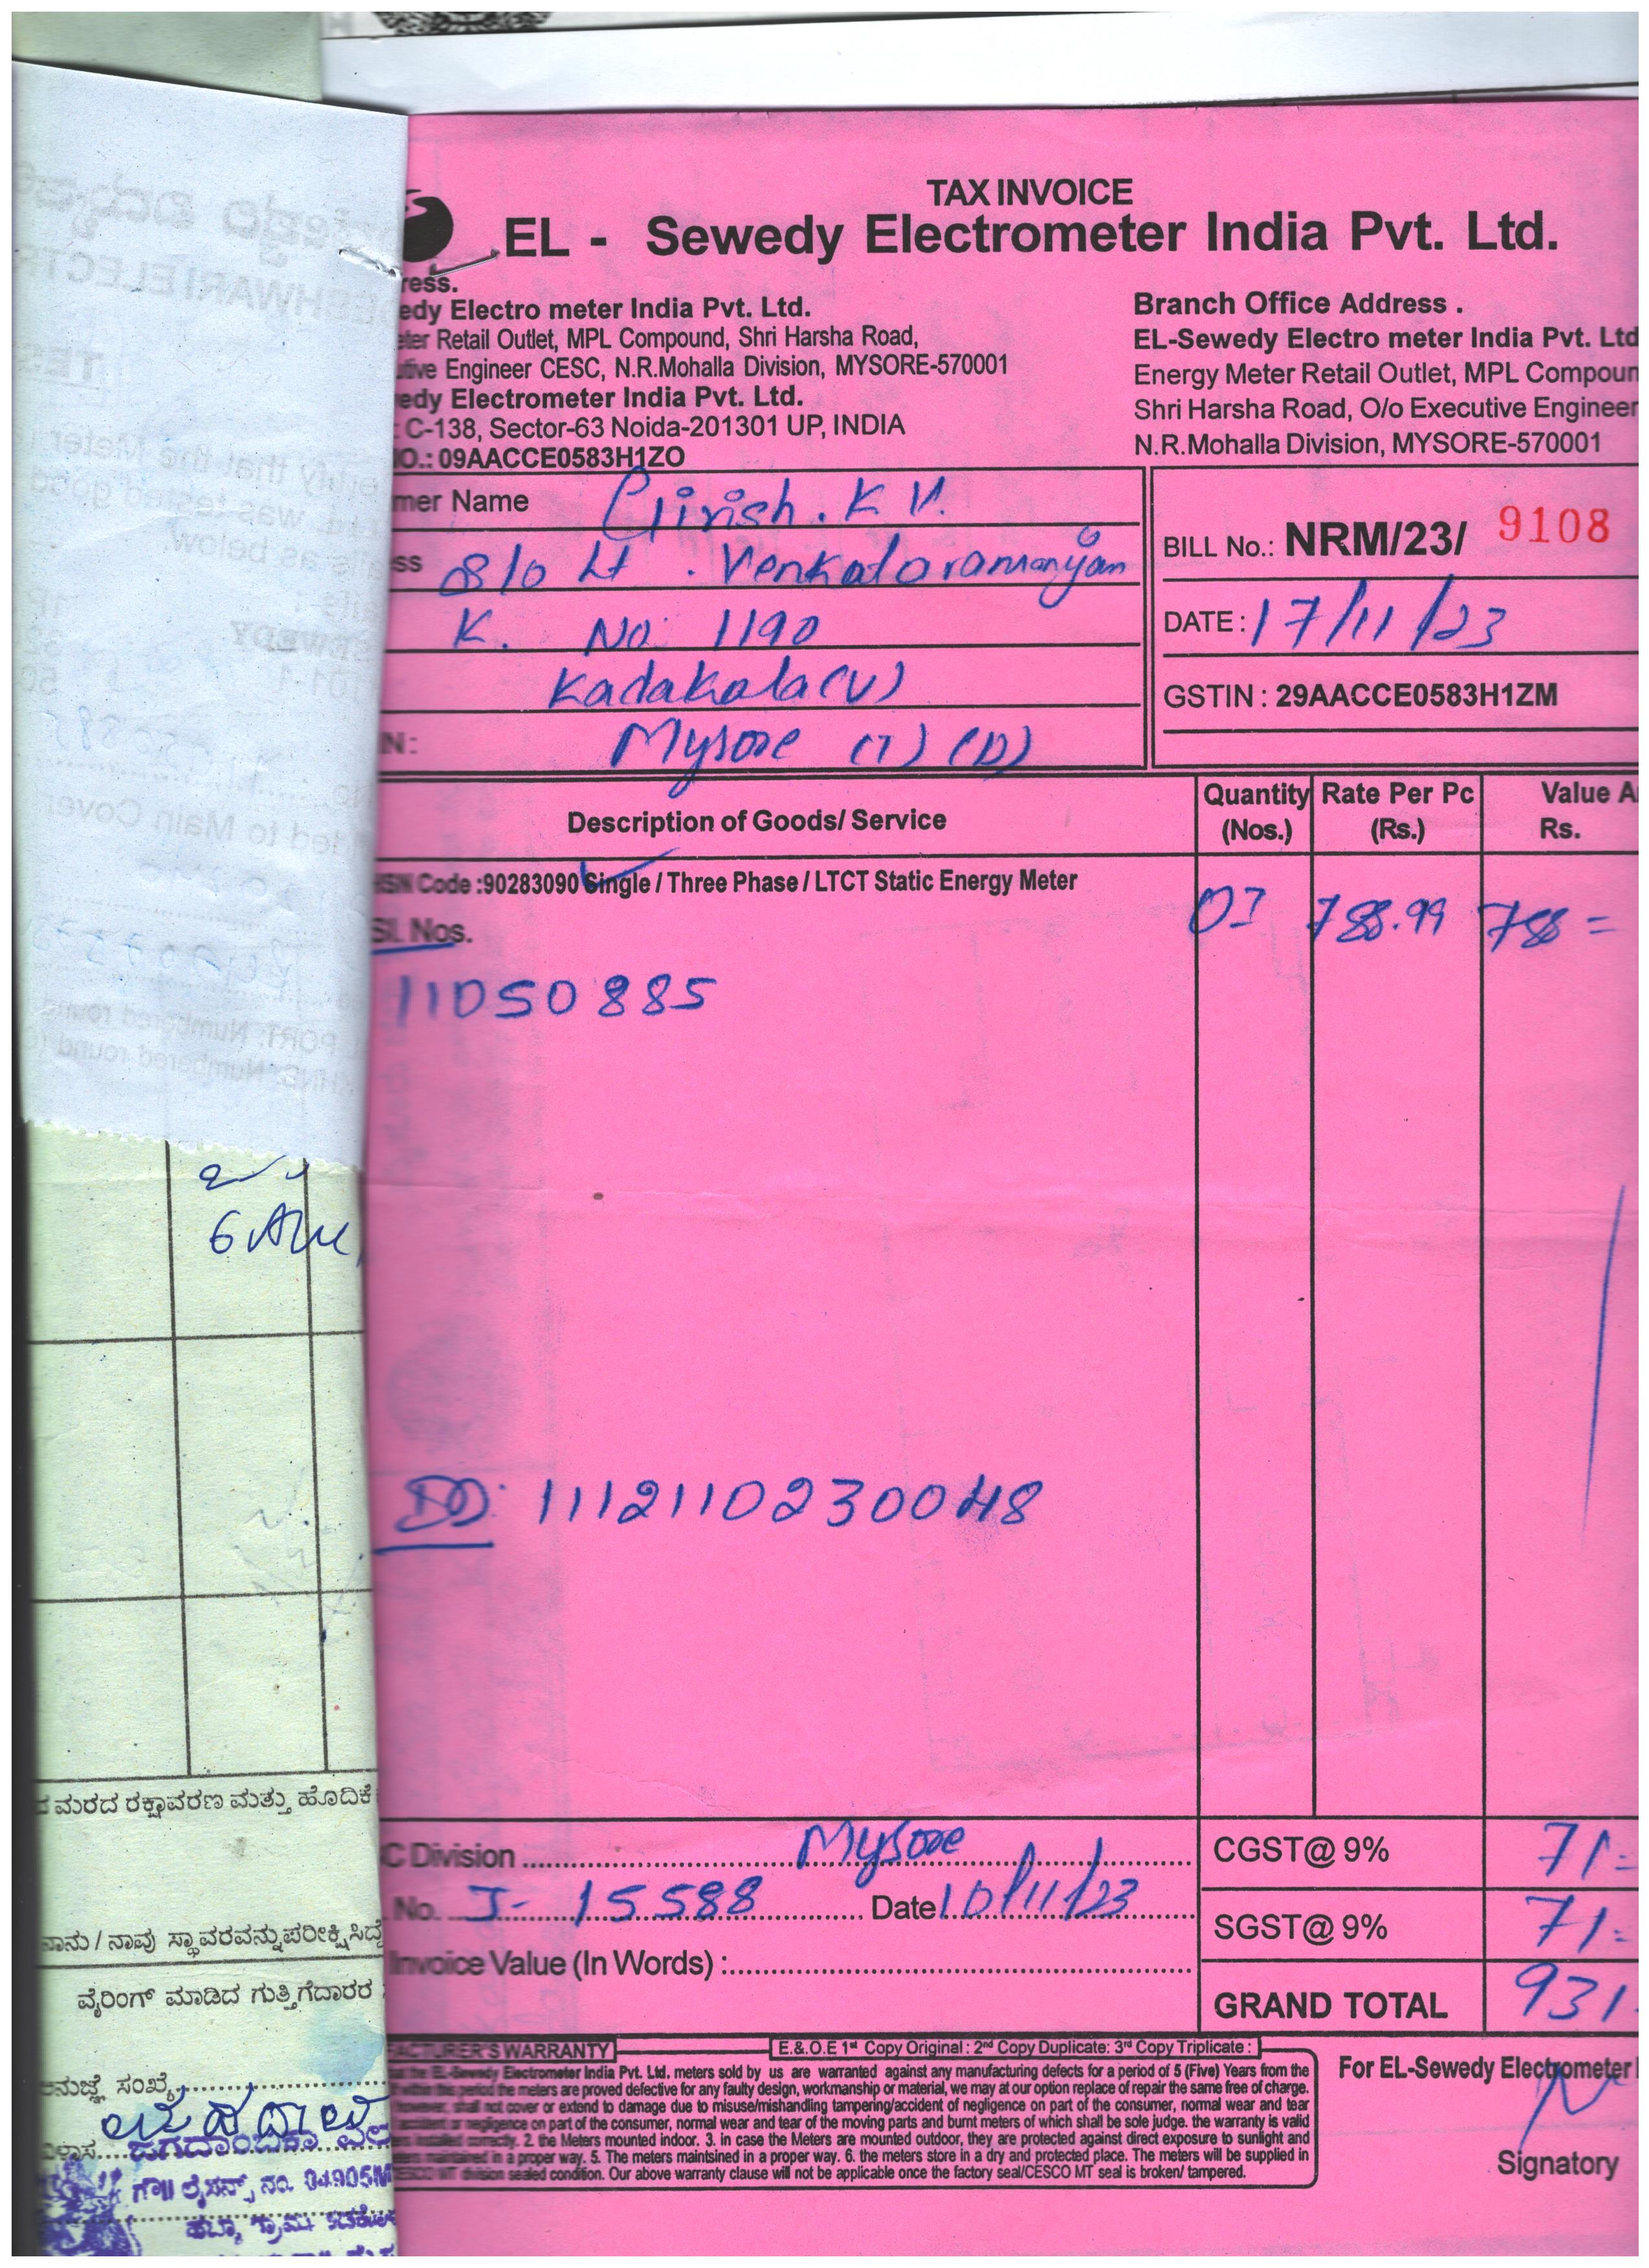 TAX INVOICE
EL - Sewedy Electrometer India Pvt. Ltd.
ress.
edy Electro meter India Pvt. Ltd.
eter Retail Outlet, MPL Compound, Shri Harsha Road,
utive Engineer CESC, N.R.Mohalla Division, MYSORE-570001
edy Electrometer India Pvt. Ltd.
: C-138, Sector-63 Noida-201301 UP, INDIA
O.: 09AACCE0583H1ZO
Branch Office Address .
EL-Sewedy Electro meter India Pvt. Ltd
Energy Meter Retail Outlet, MPL Compoun
Shri Harsha Road, O/o Executive Engineer
N.R.Mohalla Division, MYSORE-570001
mer Name Girish . K V.
ss S/o Lt . Venkataramanyan
K. No: 1190
Kadakola (V)
N: Mysore (T) (D)
BILL No.: NRM/23/ 9108
DATE : 17/11/23
GSTIN : 29AACCE0583H1ZM
Description of Goods/ Service
Quantity (Nos.)
Rate Per Pc (Rs.)
Value A
Rs.
HSN Code :90283090 Single / Three Phase / LTCT Static Energy Meter
01 788.99 788 =
Sl. Nos.
11050885
DD: 1112110230048
C Division Mysore
No. J- 15588 Date 10/11/23
Invoice Value (In Words) :
CGST@ 9% 71=
SGST@ 9% 71=
GRAND TOTAL 931
ACTURER'S WARRANTY
E.&.O.E 1st Copy Original : 2nd Copy Duplicate: 3rd Copy Triplicate :
the EL-Sewedy Electrometer India Pvt. Ltd. meters sold by us are warranted against any manufacturing defects for a period of 5 (Five) Years from the
within this period the meters are proved defective for any faulty design, workmanship or material, we may at our option replace of repair the same free of charge.
however, shall not cover or extend to damage due to misuse/mishandling tampering/accident of negligence on part of the consumer, normal wear and tear
accident or negligence on part of the consumer, normal wear and tear of the moving parts and burnt meters of which shall be sole judge. the warranty is valid
installed correctly. 2. the Meters mounted indoor. 3. in case the Meters are mounted outdoor, they are protected against direct exposure to sunlight and
maintained in a proper way. 5. The meters maintsined in a proper way. 6. the meters store in a dry and protected place. The meters will be supplied in
CESCO MT division sealed condition. Our above warranty clause will not be applicable once the factory seal/CESCO MT seal is broken/ tampered.
For EL-Sewedy Electrometer
Signatory
ದ ಮರದ ರಕ್ಷಾವರಣ ಮತ್ತು ಹೊದಿಕೆ
ನಾನು / ನಾವು ಸ್ಥಾವರವನ್ನು ಪರೀಕ್ಷಿಸಿದ್ದೆ
ವೈರಿಂಗ್ ಮಾಡಿದ ಗುತ್ತಿಗೆದಾರರ
ಅನುಜ್ಞೆ ಸಂಖ್ಯೆ